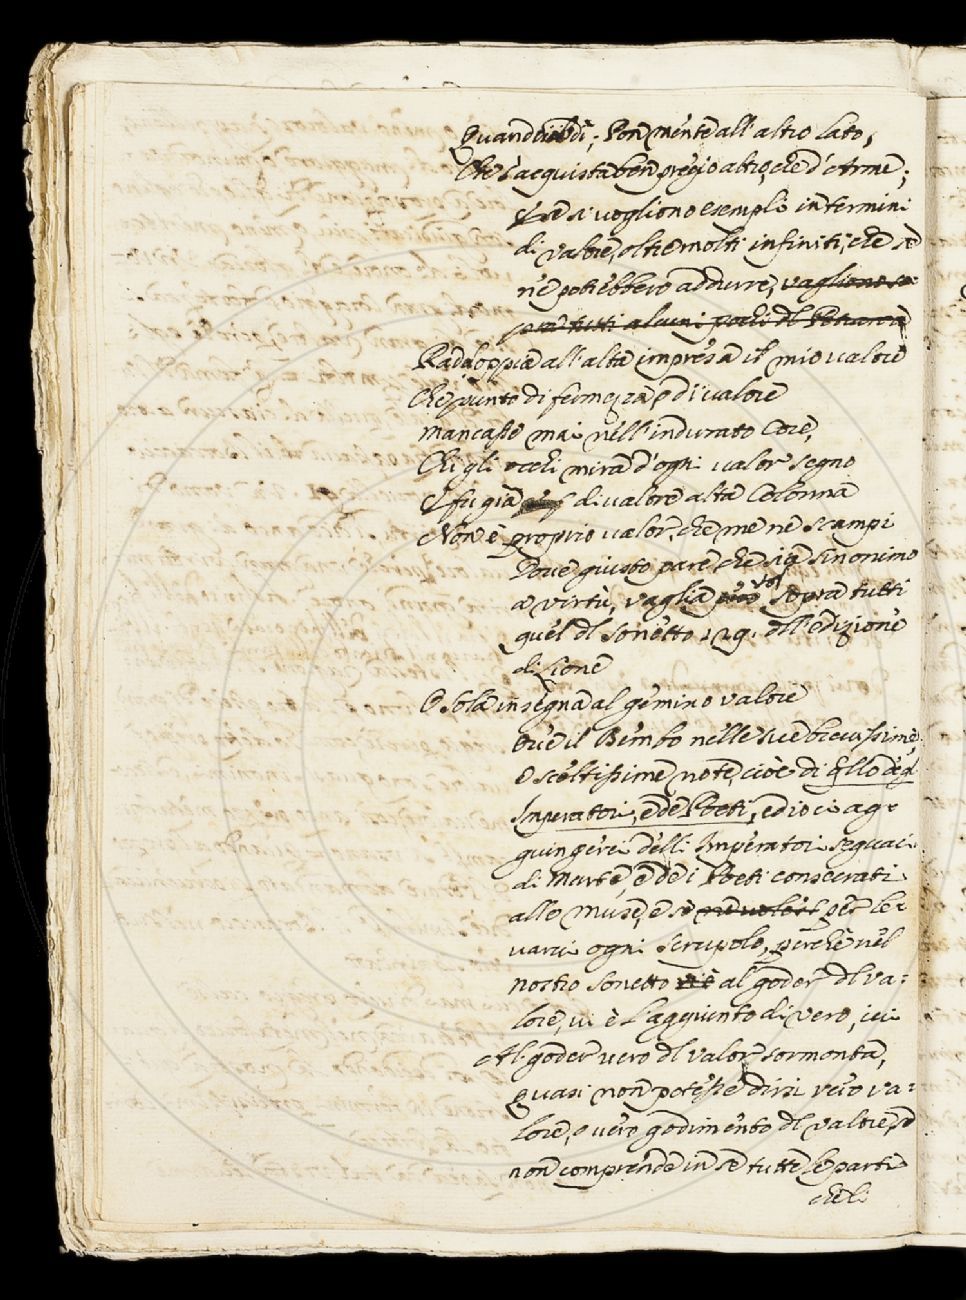 Quand udi; Pon mente all'altro lato,
Che s'acquista ben pregio altro, che d'Arme;
E se si vogliono esempli in termini
di valore, oltre molti infiniti, che se
ne potrebbero addurre, vagliono so-
pra tutti alcuni pochi dl Petrarca
Raddoppia all'alta impresa il mio valore
Che punto di fermezza, o di valore
Mancasse mai nell'indurato Core,
Ch'i gli occhi mira d'ogni valor segno
E fu già di valore alta Colonna
Non è proprio valor, che me ne scampi
Dove giusto pare, che sia sinonimo
a virtù, vaglia sopra tutti
quel dl sonetto 229. dll'edizione
di Lione
O sola insegna al gemino valore
ove il Bembo nelle sue brevissime,
e sceltissime note, cioè di qllo degl'
Imperatori, e de Poeti, ed io ci ag-
guingerei delli Imperatori seguaci
di Marte, e dei Poeti consecrati
alle Muse, e se per le-
varci ogni scrupolo, perchè nel
nostro sonetto al goder dl va-
lore, vi è l'aggiunto di vero, ivi
Al goder vero dl valor sormonta,
quasi non potesse dirsi vero va-
lore, o vero godimento dl valore, se
non comprende in se tutte le parti
che li